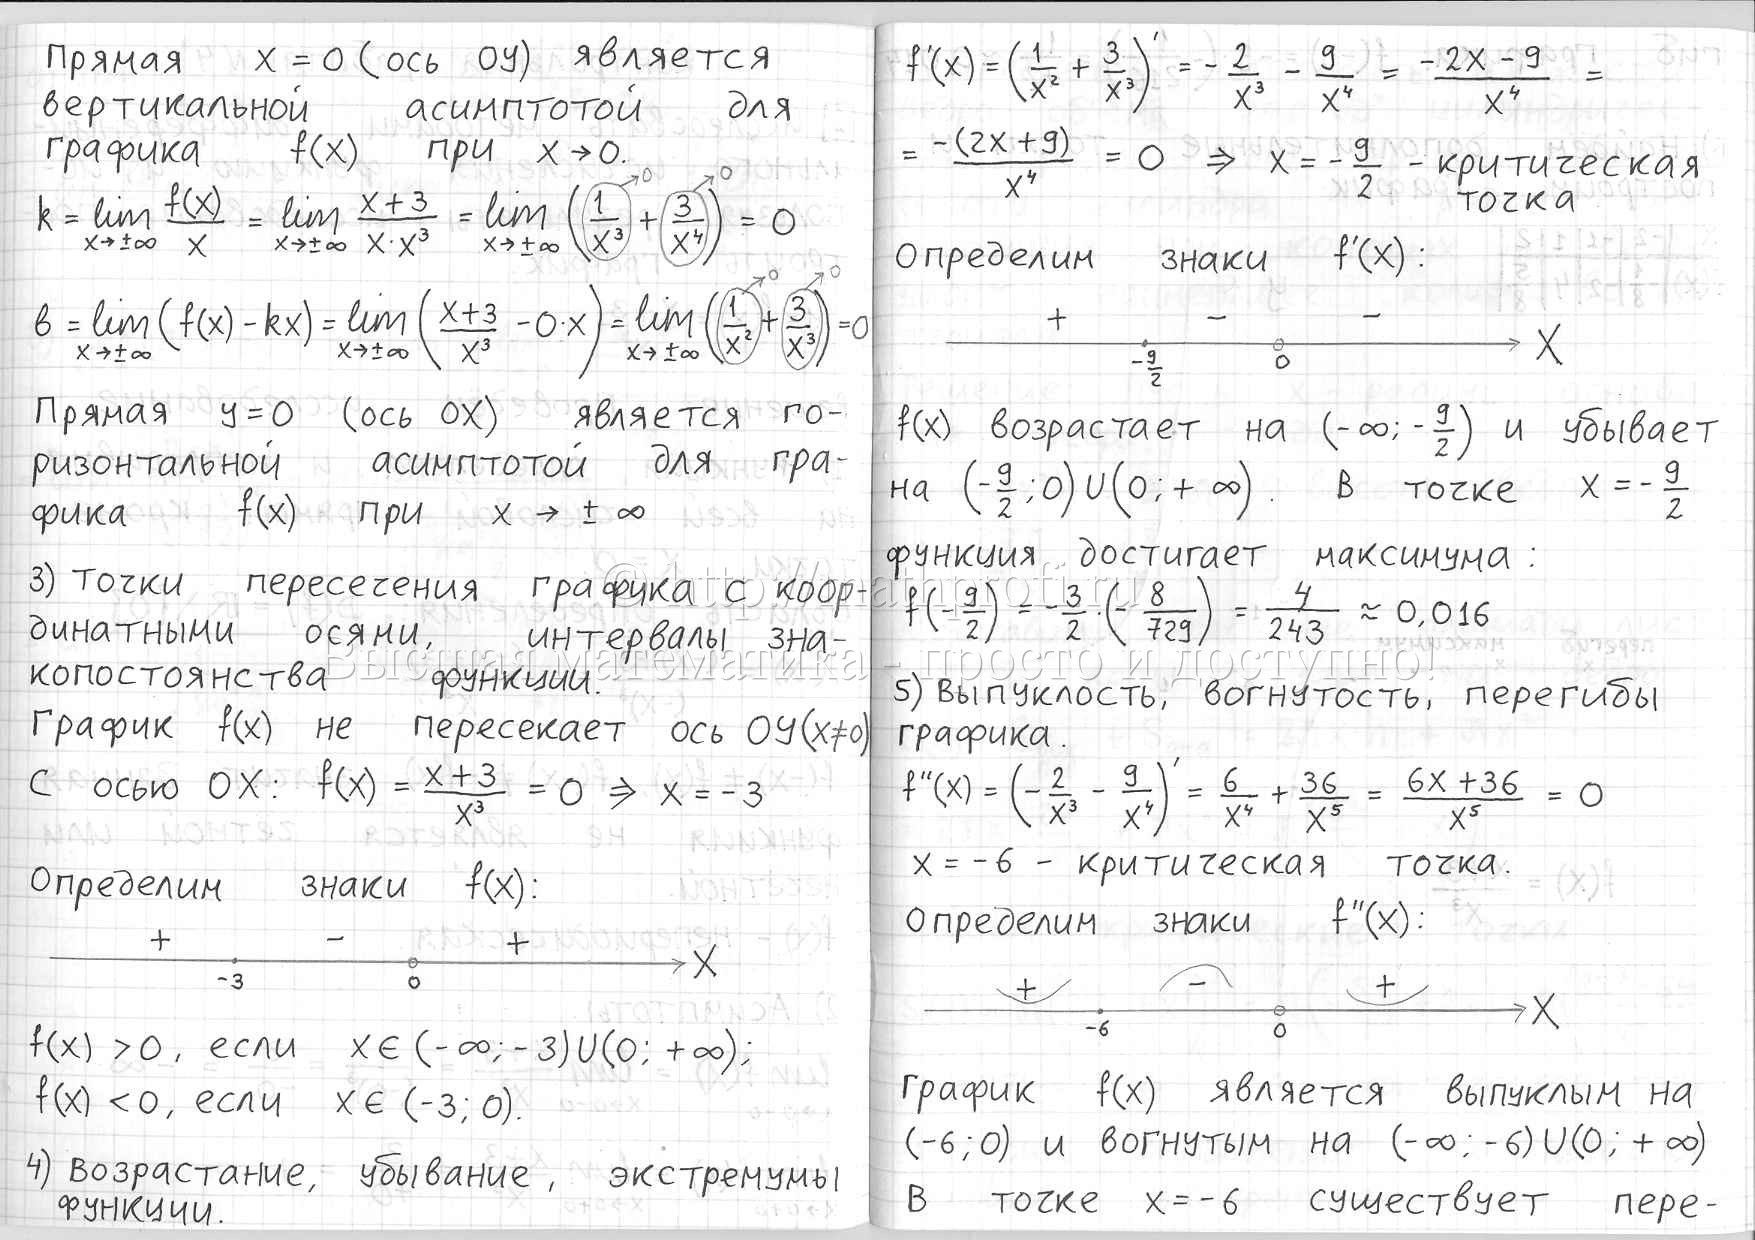 Прямая x = 0 (ось OY) является
вертикальной асимптотой для
графика f(x) при x → 0.
k = lim_{x→±∞} f(x)/x = lim_{x→±∞} (x+3)/(x·x³) = lim_{x→±∞} (1/x³ + 3/x⁴) = 0
→0 →0
b = lim_{x→±∞} (f(x) - kx) = lim_{x→±∞} ((x+3)/x³ - 0·x) = lim_{x→±∞} (1/x² + 3/x³) = 0
→0 →0
Прямая y=0 (ось OX) является го-
ризонтальной асимптотой для гра-
фика f(x) при x → ±∞
3) Точки пересечения графика с коор-
динатными осями, интервалы зна-
копостоянства функции.
График f(x) не пересекает ось OY(x≠0)
С осью OX: f(x) = (x+3)/x³ = 0 ⇒ x = -3
Определим знаки f(x):
+ - +
-3 0 X
f(x) > 0, если x ∈ (-∞; -3) U (0; +∞);
f(x) < 0, если x ∈ (-3; 0).
4) Возрастание, убывание, экстремумы
функции.
f'(x) = (1/x² + 3/x³)' = -2/x³ - 9/x⁴ = (-2x - 9)/x⁴ =
= -(2x+9)/x⁴ = 0 ⇒ x = -9/2 - критическая
точка
Определим знаки f'(x):
+ - -
-9/2 0 X
f(x) возрастает на (-∞; -9/2) и убывает
на (-9/2; 0) U (0; +∞). В точке x = -9/2
функция достигает максимума:
f(-9/2) = -3/2·(-8/729) = 4/243 ≈ 0,016
5) Выпуклость, вогнутость, перегибы
графика.
f''(x) = (-2/x³ - 9/x⁴)' = 6/x⁴ + 36/x⁵ = (6x+36)/x⁵ = 0
x = -6 - критическая точка.
Определим знаки f''(x):
+ - +
-6 0 X
График f(x) является выпуклым на
(-6; 0) и вогнутым на (-∞; -6) U (0; +∞)
В точке x = -6 существует пере-
© http://mathprofi.ru
Высшая математика - просто и доступно!